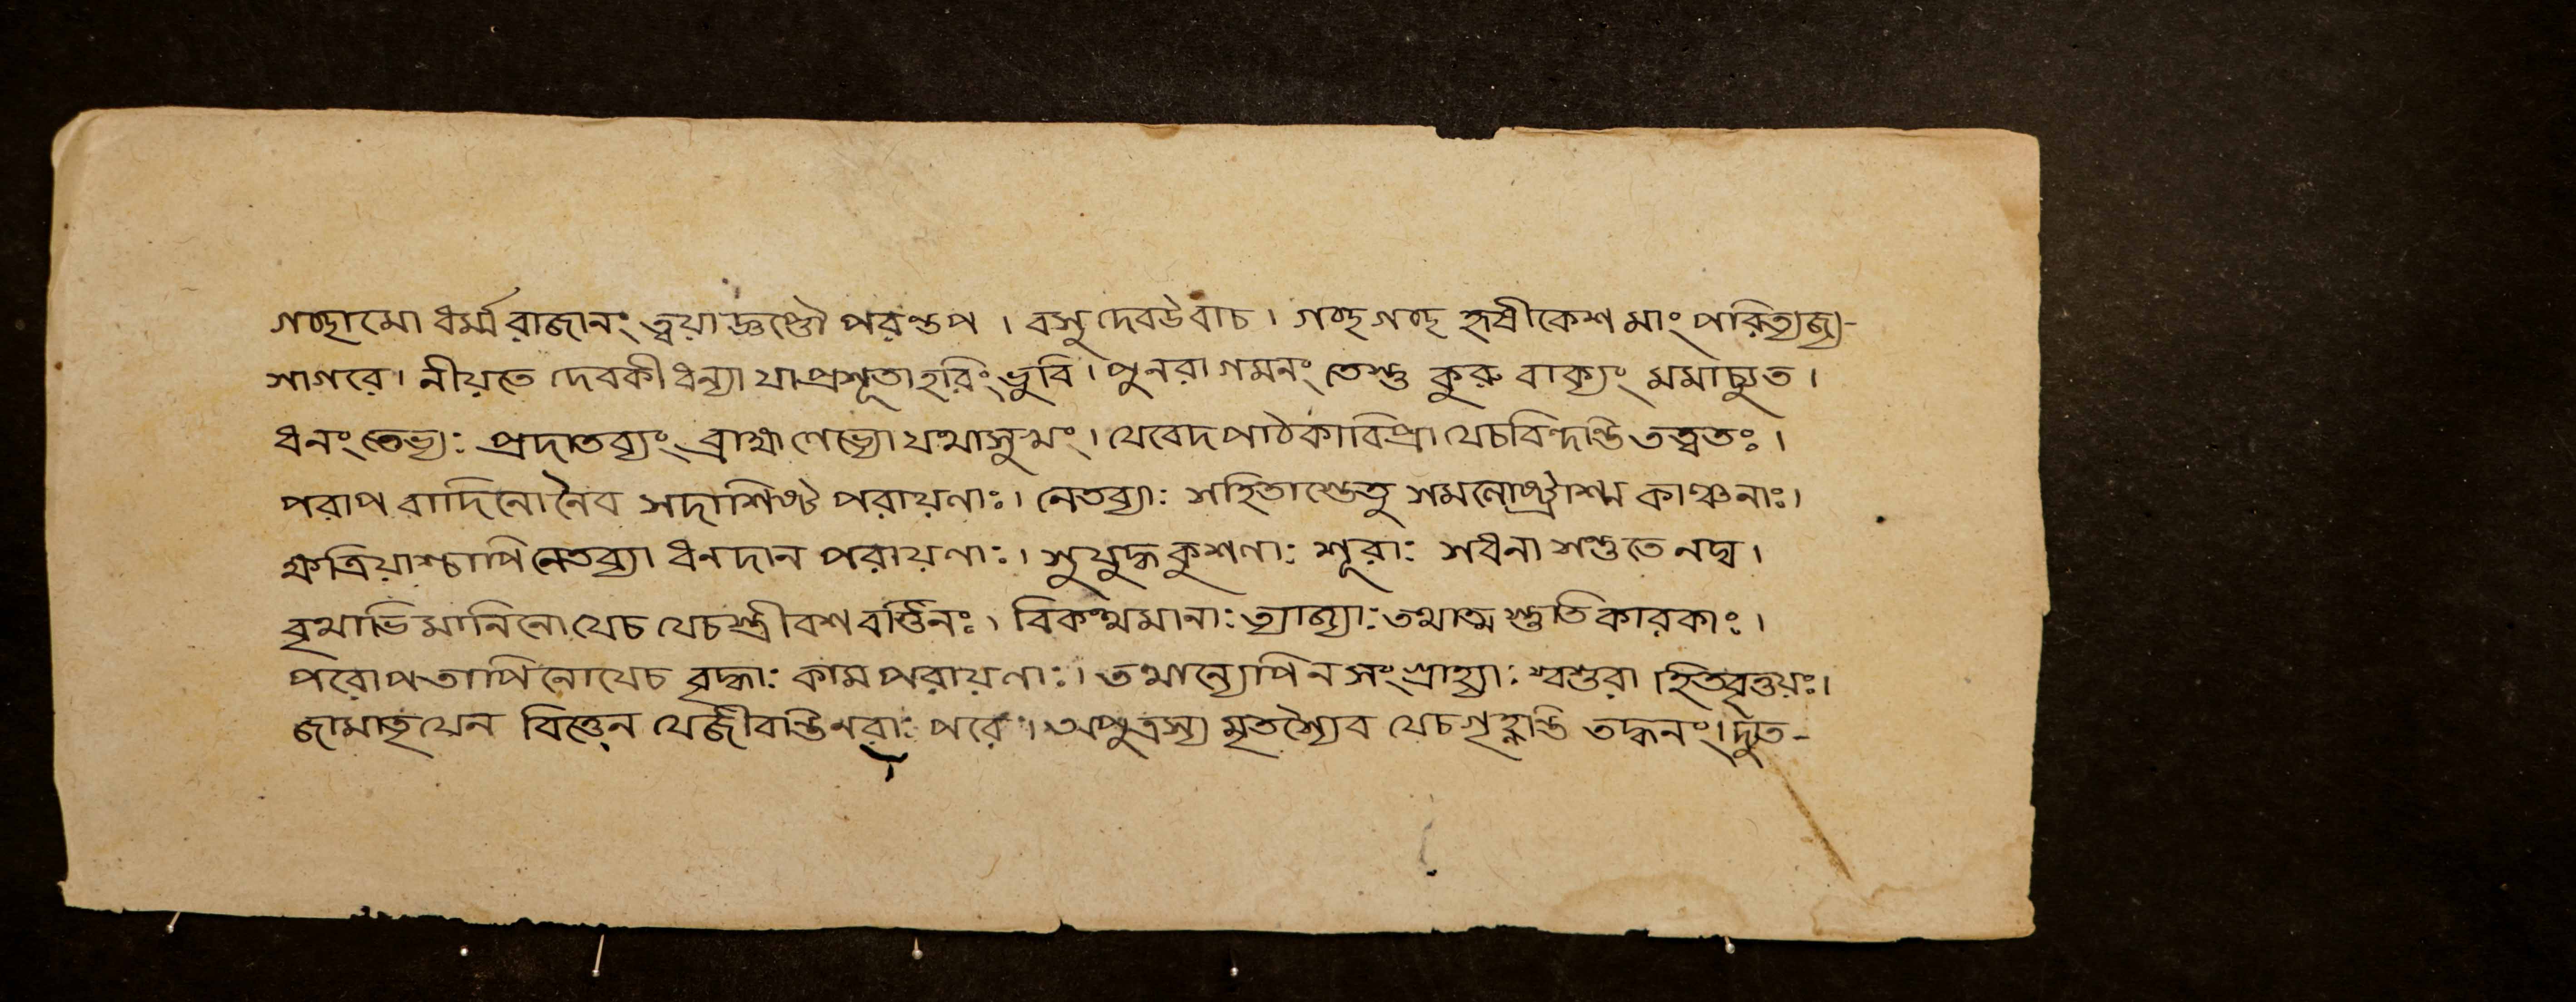 গচ্ছামো ধর্ম্মরাজানং ত্বয়াজ্ঞপ্তৌ পরন্তপ । বসুদেবউবাচ । গচ্ছগচ্ছ হৃষীকেশ মাং পরিত্যজ্য-
সাগরে । নীয়তে দেবকীধন্যা যাপ্রশূতাহরিং ভুবি । পুনরাগমনং তেস্তু কুরু বাক্যং মমাচ্যুত ।
ধনং তেভ্যঃ প্রদাতব্যং ব্রাহ্মণেভ্যো যথাসুখং । যেবেদপাঠকাবিপ্রা যেচবিন্দন্তি তত্বতঃ ।
পরাপবাদিনোনৈব সদাশিষ্ট পরায়ণাঃ । নেতব্যাঃ সহিতাস্তেতু সমলোষ্ট্রাশ্ম কাঞ্চনাঃ ।
ক্ষত্রিয়াশ্চাপি নেতব্যা ধনদান পরায়ণাঃ । সুযুদ্ধকুশলাঃ শূরাঃ সধনা শস্তুতে নঘ ।
বৃথাভিমানিনো যেচ যেচস্ত্রীবশবর্ত্তিনঃ । বিকত্থমানাঃ ত্যাজ্যাঃ তথাত্মস্তুতিকারকাঃ ।
পরোপতাপিনোযেচ বৃদ্ধাঃ কামপরায়ণাঃ । তথান্যোপিনসংগ্রাহ্যাঃ শ্বশুরা হিতবৃত্তয়ঃ ।
জামাতৃযেন বিত্তেন যেজীবন্তিনরাঃ পরে । অপুত্রস্য মৃতশ্যৈব যেচগৃহ্ণন্তি তদ্ধনং । দ্যুত-